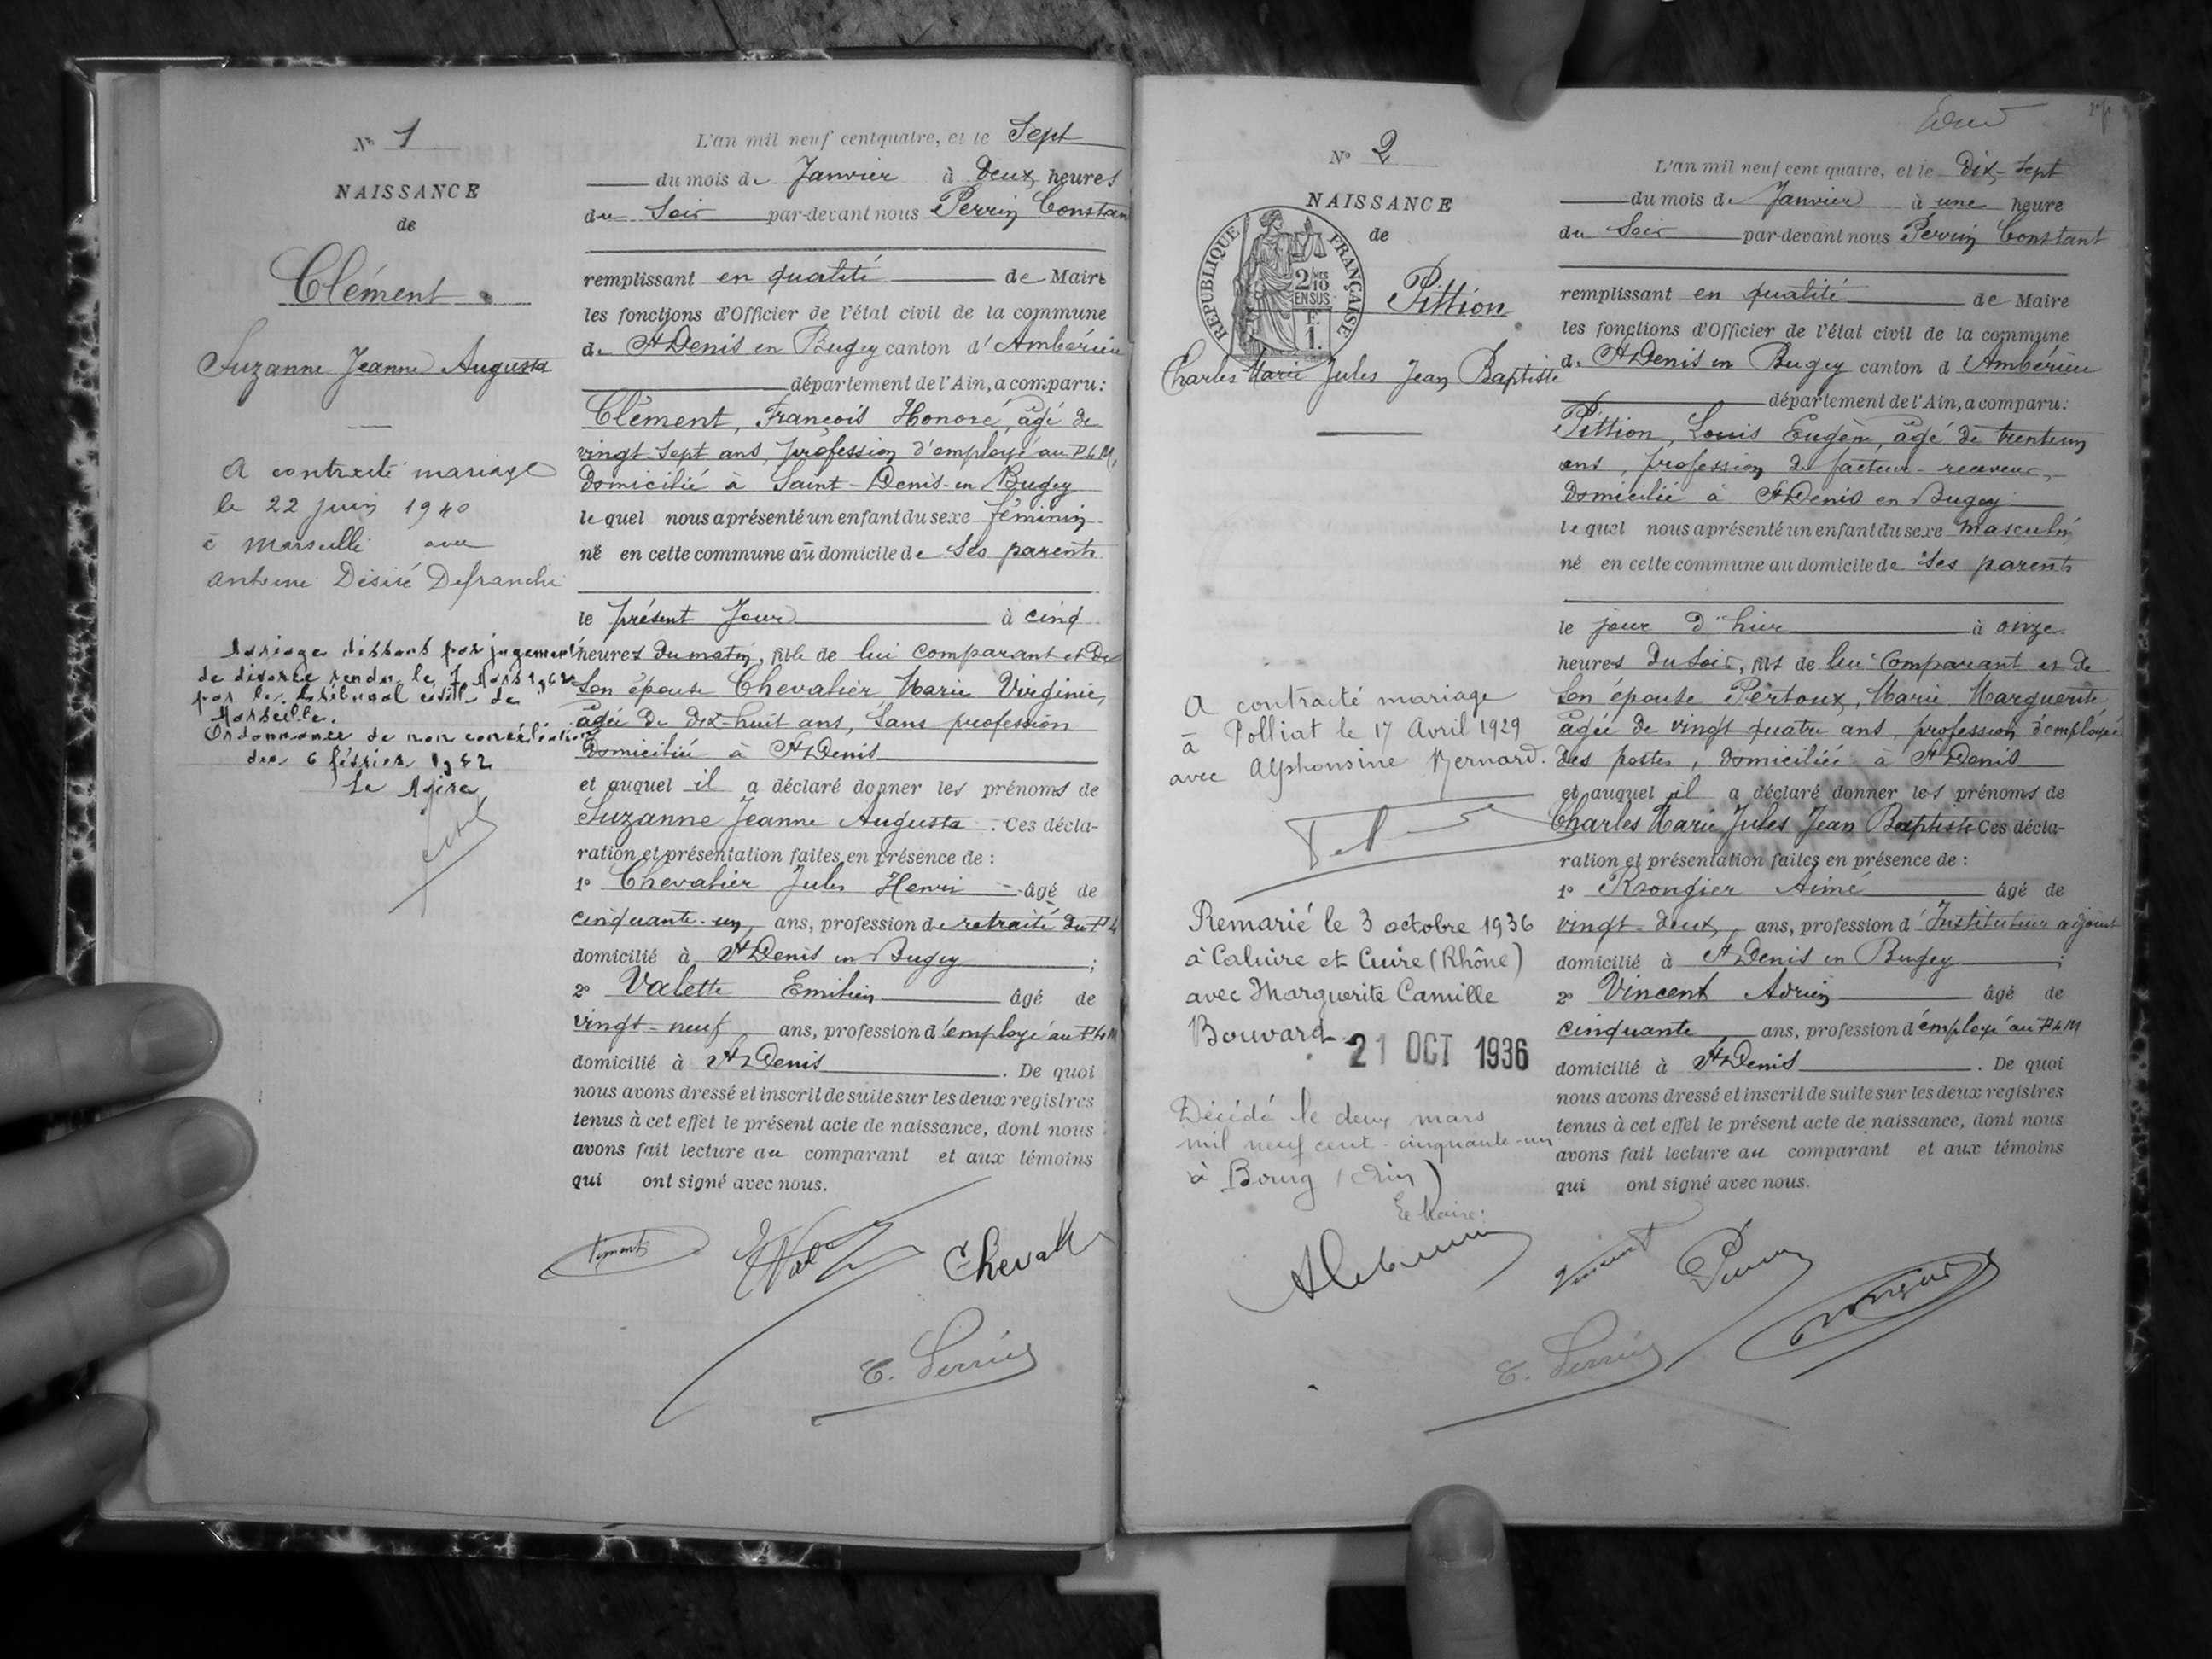 N° 1
NAISSANCE
de
Clément
Suzanne Jeanne Augusta
A contracté mariage
le 22 juin 1940
à Marseille avec
Antoine Désiré Defranchi
Mariage dissous par jugement
de divorce rendu le 7 Mars 1962
par le tribunal civil de
Marseille.
Ordonnance de non conciliation
du 6 février 1962
Le Maire
L'an mil neuf cent quatre, et le Sept
du mois de Janvier à Deux heures
du Soir par-devant nous Perrin Constan
remplissant en qualité de Maire
les fonctions d'Officier de l'état civil de la commune
de St Denis en Bugey canton d'Ambérieu
département de l'Ain, a comparu:
Clément, François Honoré, âgé de
vingt-sept ans, profession d'employé au P.L.M,
domicilié à Saint-Denis-en Bugey
lequel nous a présenté un enfant du sexe féminin
né en cette commune au domicile de Ses parents
le présent Jour à cinq
heures du matin, fille de lui comparant et de
Son épouse Chevalier Marie Virginie,
âgée de dix-huit ans, Sans profession
domiciliée à St Denis
et auquel il a déclaré donner les prénoms de
Suzanne Jeanne Augusta. Ces décla-
ration et présentation faites en présence de :
1° Chevalier Jules Henri âgé de
cinquante-un ans, profession de retraité du P L
domicilié à St Denis en Bugey ;
2° Valette Emilien âgé de
vingt-neuf ans, profession d'employé au P L M
domicilié à St Denis. De quoi
nous avons dressé et inscrit de suite sur les deux registres
tenus à cet effet le présent acte de naissance, dont nous
avons fait lecture au comparant et aux témoins
qui ont signé avec nous.
Chevall
C. Perrin
N° 2
NAISSANCE
de
RÉPUBLIQUE FRANÇAISE
2/10
EN SUS
F.
1.
Pittion
Charles Marie Jules Jean Baptiste
A contracté mariage
à Polliat le 17 Avril 1929
avec Alphonsine Bernard.
Remarié le 3 octobre 1936
à Caluire et Cuire (Rhône)
avec Marguerite Camille
Bouvard
21 OCT 1936
Décédé le deux mars
mil neuf cent cinquante-un
à Bourg (Ain)
Le Maire:
L'an mil neuf cent quatre, et le Dix-Sept
du mois de Janvier à une heure
du Soir par-devant nous Perrin Constant
remplissant en qualité de Maire
les fonctions d'Officier de l'état civil de la commune
de St Denis en Bugey canton d'Ambérieu
département de l'Ain, a comparu:
Pittion, Louis Eugène, âgé de trente un
ans, profession de facteur-receveur,
domicilié à St Denis en Bugey
lequel nous a présenté un enfant du sexe masculin
né en cette commune au domicile de Ses parents
le jour d'hier à onze
heures du Soir, fils de lui Comparant et de
Son épouse Pertoux, Marie Marguerite
âgée de vingt quatre ans, profession d'employée
des postes, domiciliée à St Denis
et auquel il a déclaré donner les prénoms de
Charles Marie Jules Jean Baptiste Ces décla-
ration et présentation faites en présence de :
1° Rongier Aimé âgé de
vingt-deux ans, profession d'Instituteur adjoint
domicilié à St Denis en Bugey ;
2° Vincent Adrien âgé de
cinquante ans, profession d'employé au P L M
domicilié à St Denis. De quoi
nous avons dressé et inscrit de suite sur les deux registres
tenus à cet effet le présent acte de naissance, dont nous
avons fait lecture au comparant et aux témoins
qui ont signé avec nous.
C. Perrin